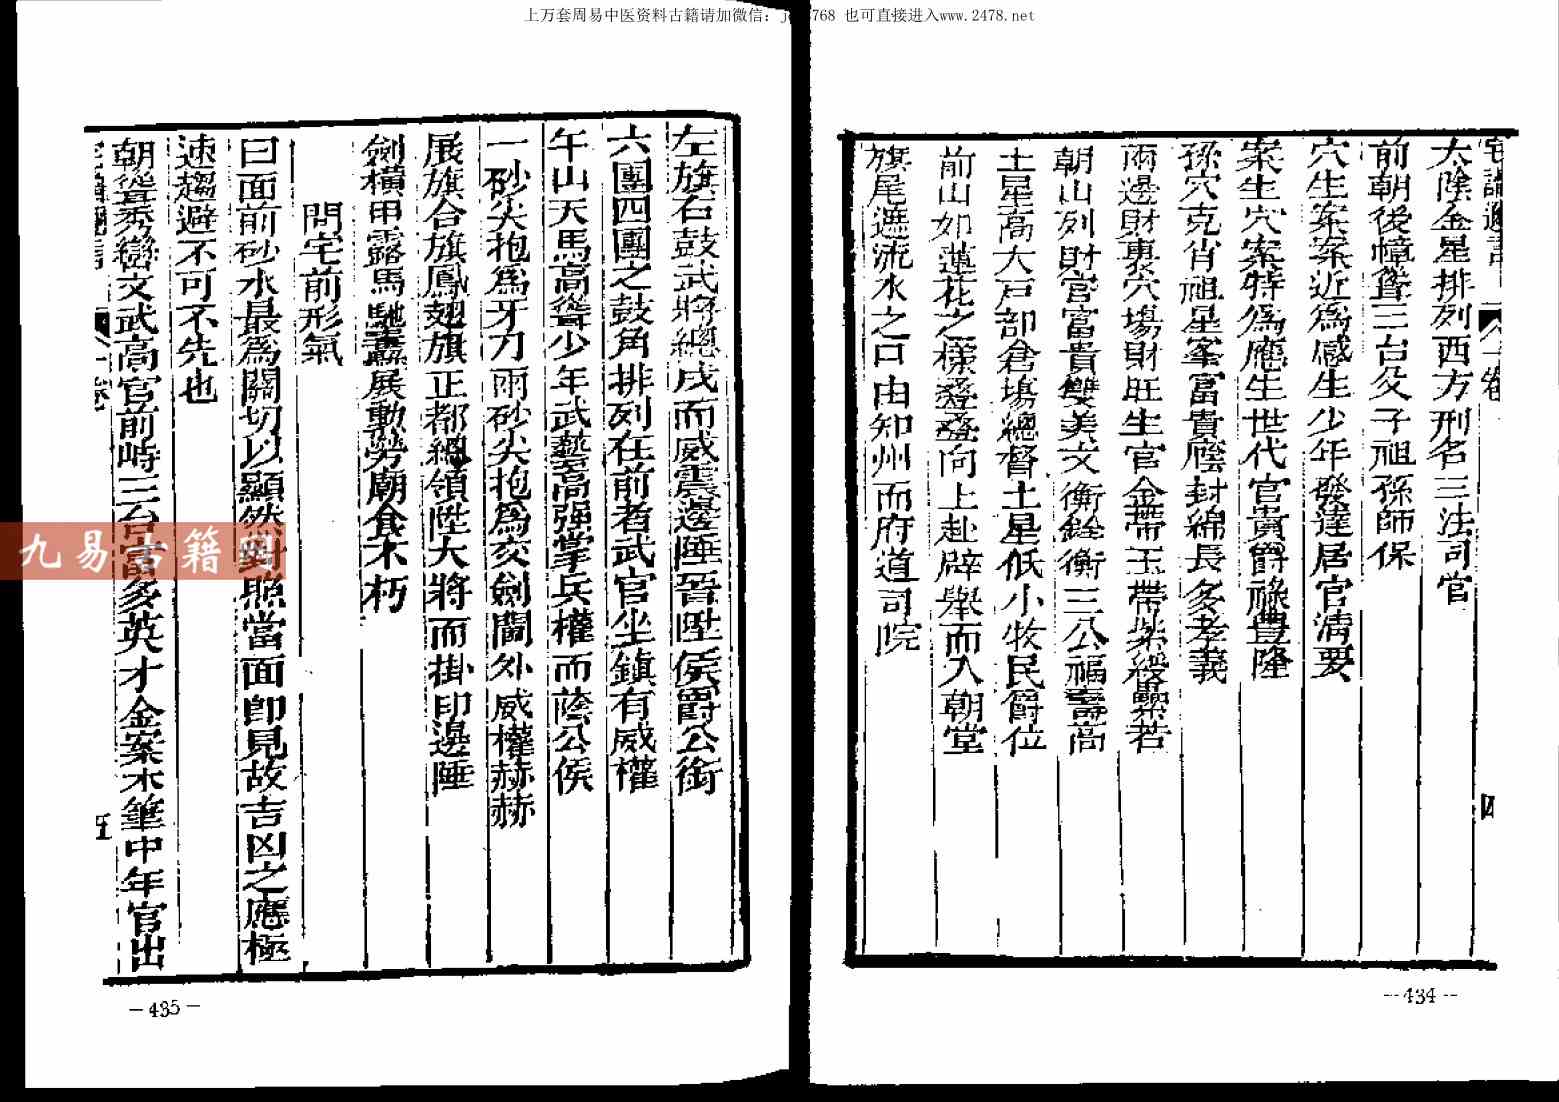 上万套周易中医资料古籍请加微信：j 768 也可直接进入www.2478.net
四
太陰金星排列西方刑名三法司官
前朝後幛聳三台父子祖孫師保
穴生案案近為感生少年發達居官清要
案生穴案特為應生世代官貴爵祿豊隆
孫穴克肖祖星峯富貴廕封綿長多孝義
兩邊財裏穴塲財旺生官金帶玉帶紫綬纍若
朝山列財官富貴雙美文衡銓衡三公福壽高
土星高大戸部倉塲總督土星低小牧民爵位
前山如蓮花之様叠叠向上赴辟舉而入朝堂
旗尾遮流水之口由知州而府道司院
-- 434 --
左旗右鼓武將總戍而威震邊陲晉陞侯爵公銜
六團四團之鼓角排列在前者武官坐鎮有威權
午山天馬高聳少年武藝高强掌兵權而蔭公侯
一砂尖抱為牙刀兩砂尖抱為交劍閫外威權赫赫
展旗合旗鳳翅旗正都總領陞大將而掛印邊陲
劍橫甲露馬馳纛展動勞廟食不朽
問宅前形氣
曰面前砂水最為關切以顯然對照當面卽見故吉凶之應極
速趨避不可不先也
朝聳秀巒文武高官前峙三台富多英才金案木筆中年官出
五
— 435 —
九易古籍网